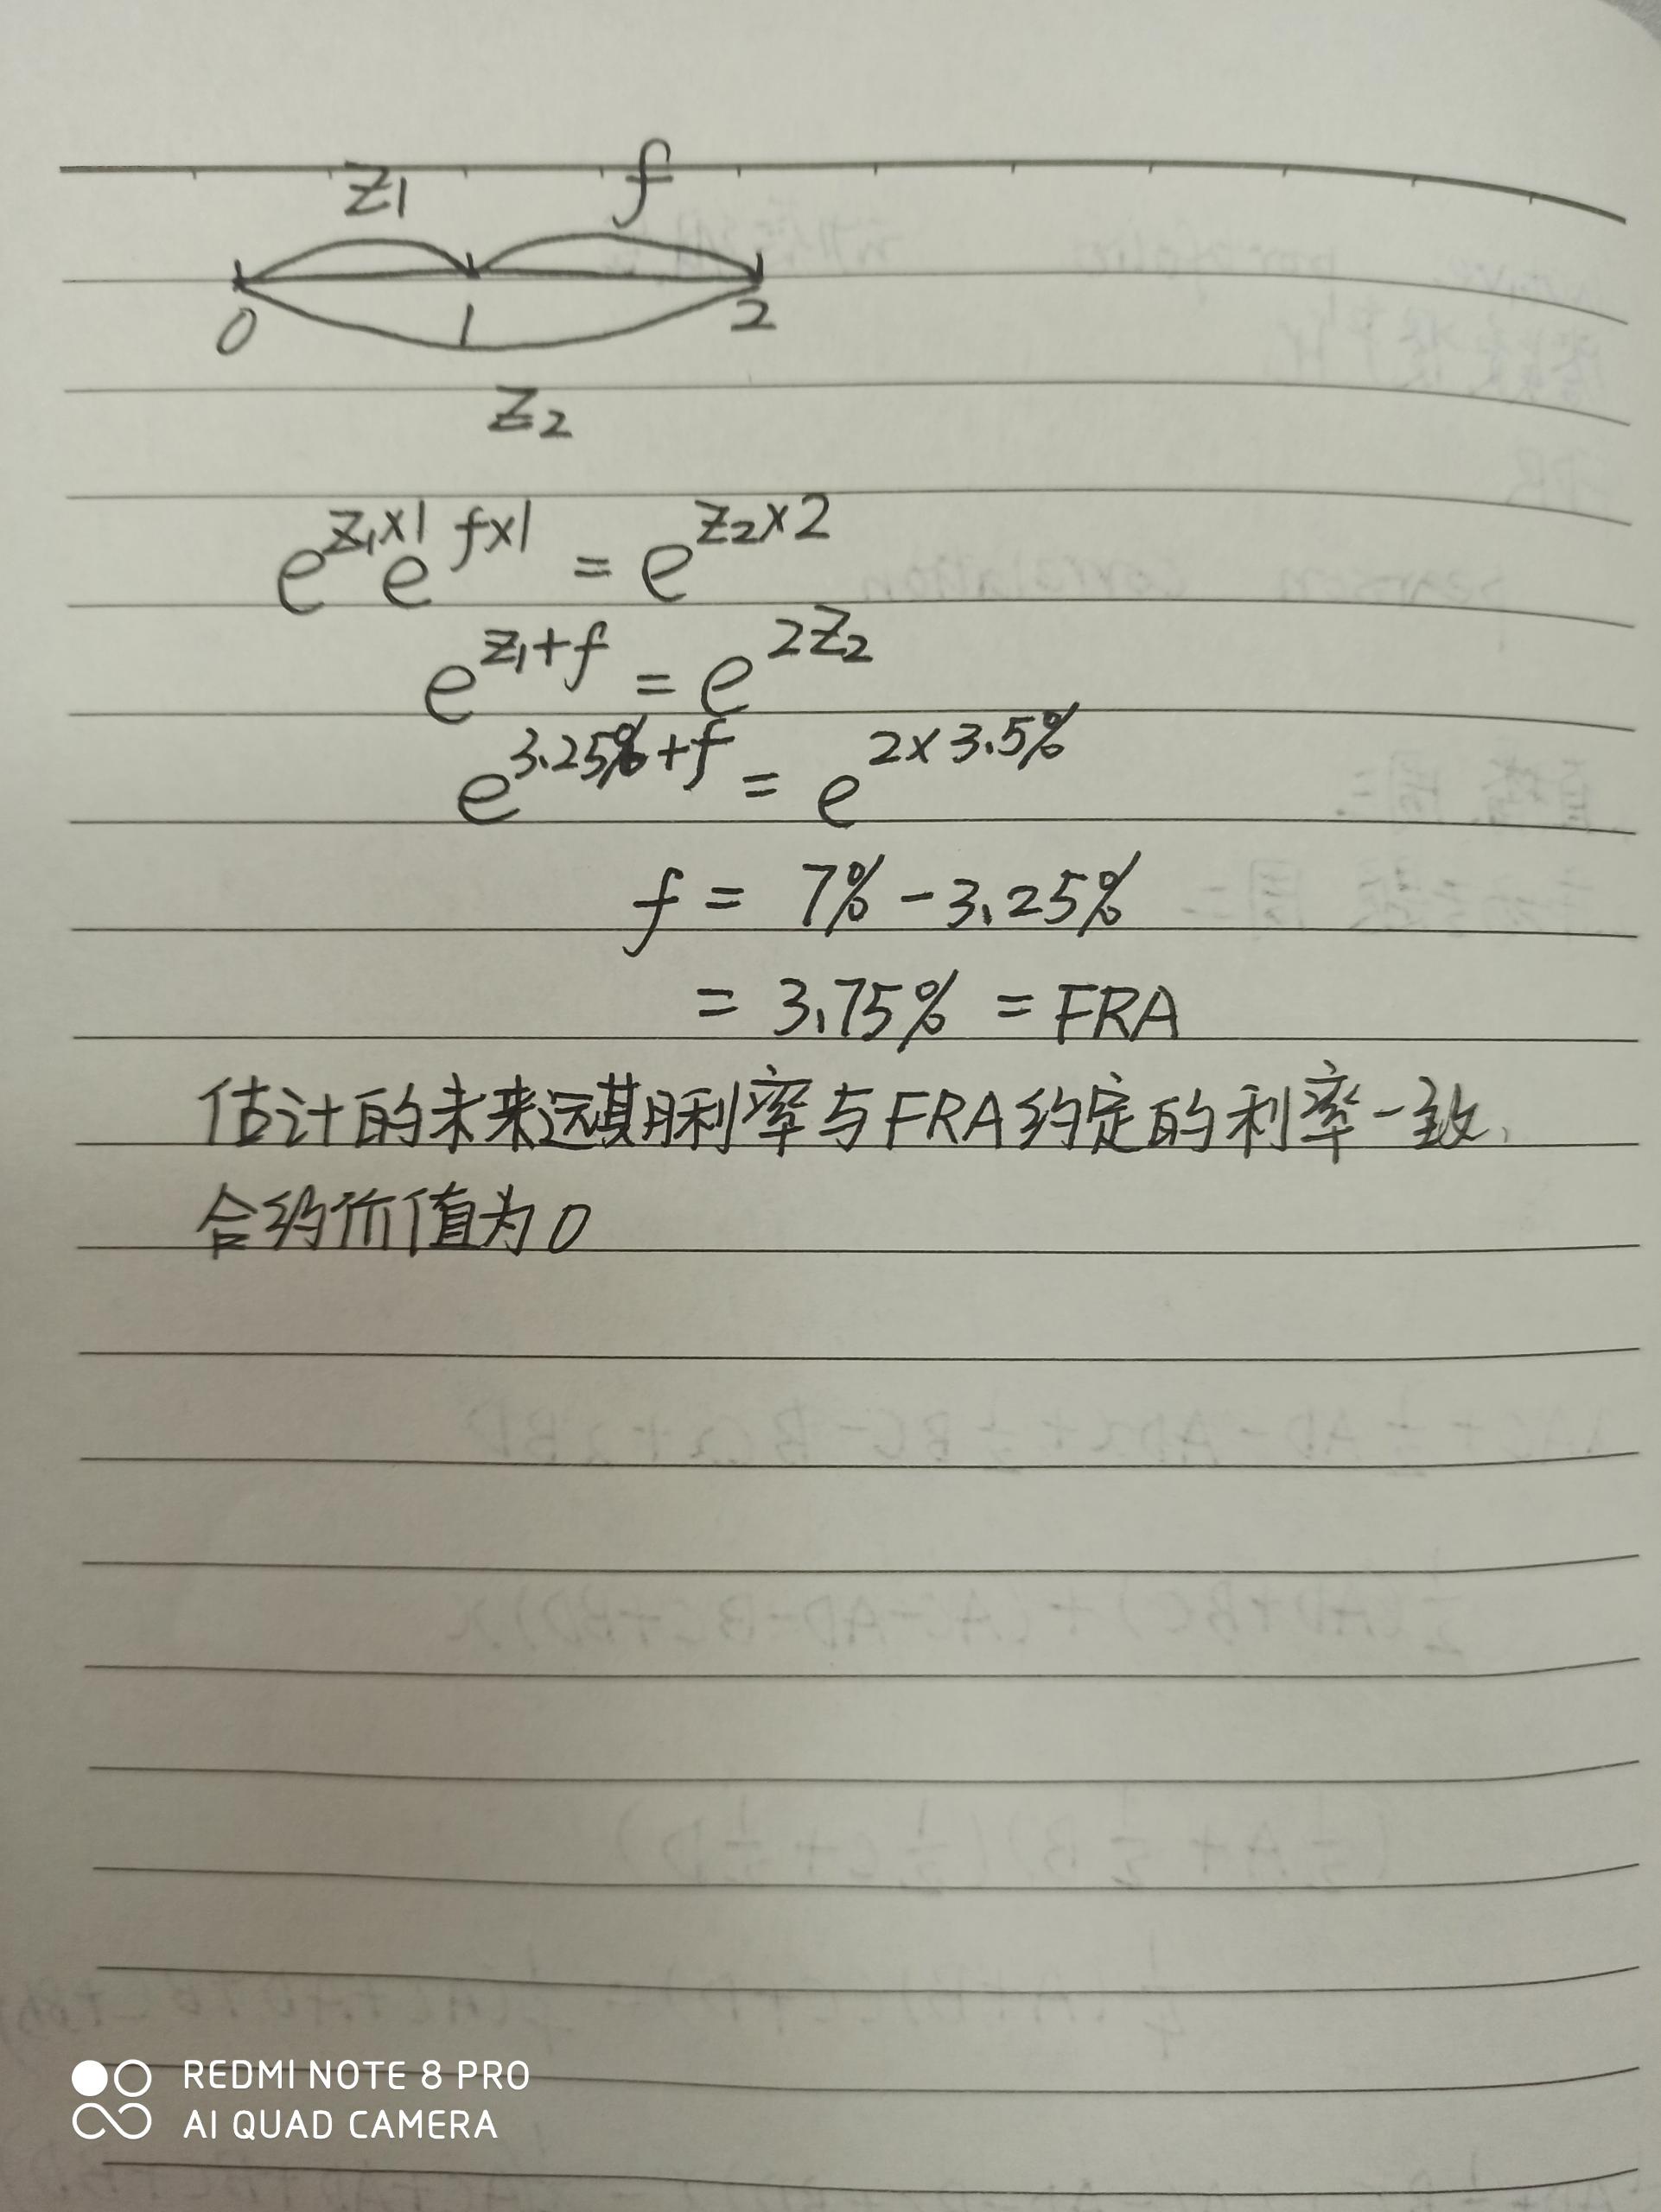 z1 f
0 1 2
z2
e^{z1×1} e^{f×1} = e^{z2×2}
e^{z1+f} = e^{2z2}
e^{3.25%+f} = e^{2×3.5%}
f = 7% - 3.25%
= 3.75% = FRA
估计的未来远期利率与FRA约定的利率一致、
合约价值为0
REDMI NOTE 8 PRO
AI QUAD CAMERA